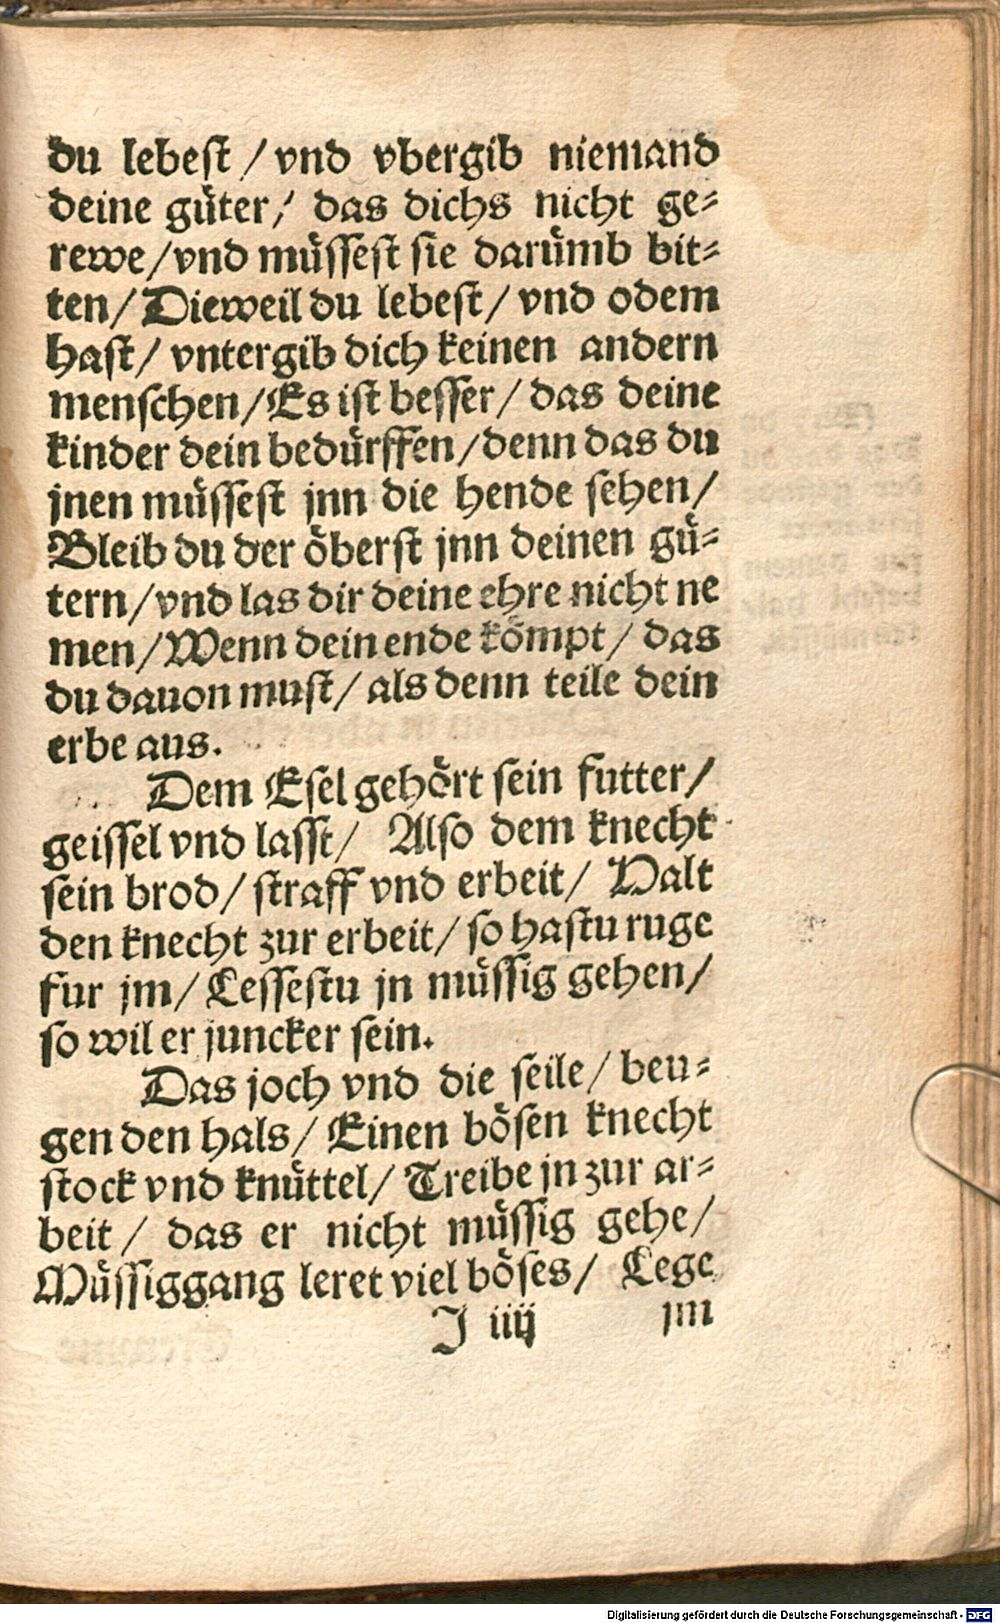 du lebest / vnd vbergib niemand
deine güter / das dichs nicht ge⸗
rewe / vnd müssest sie darümb bit⸗
ten / Dieweil du lebest / vnd odem
hast / vntergib dich keinen andern
menschen / Es ist besser / das deine
kinder dein bedürffen / denn das du
jnen müssest jnn die hende sehen /
Bleib du der öberst jnn deinen gü⸗
tern / vnd las dir deine ehre nicht ne
men / Wenn dein ende kömpt / das
du dauon must / als denn teile dein
erbe aus.
Dem Esel gehört sein futter /
geissel vnd lasst / Also dem knecht
sein brod / straff vnd erbeit / Halt
den knecht zur erbeit / so hastu ruge
fur jm / Lessestu jn müssig gehen /
so wil er juncker sein.
Das joch vnd die seile / beu⸗
gen den hals / Einen bösen knecht
stock vnd knüttel / Treibe jn zur ar⸗
beit / das er nicht müssig gehe /
Müssiggang leret viel böses / Lege
J iiij jm
Digitalisierung gefördert durch die Deutsche Forschungsgemeinschaft - DFG